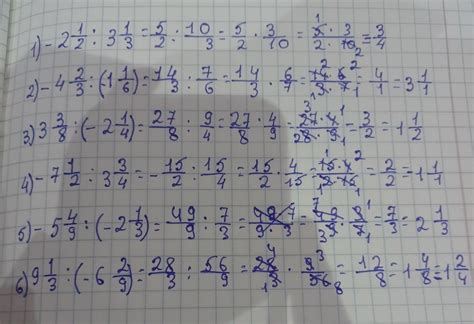 1) -2 1/2 : 3 1/3 = 5/2 : 10/3 = 5/2 · 3/10 = 5·3/2·10 = 3/4
2) -4 2/3 : (1 1/6) = 14/3 : 7/6 = 14/3 · 6/7 = 14·6/3·7 = 4/1 = 3 1/1
3) 3 3/8 : (-2 1/4) = 27/8 : 9/4 = 27/8 · 4/9 = 27·4/8·9 = 3/2 = 1 1/2
4) -7 1/2 : 3 3/4 = -15/2 : 15/4 = 15/2 · 4/15 = 15·4/2·15 = 2/2 = 1 1/1
5) -5 4/9 : (-2 1/3) = 49/9 : 7/3 = 49·7/9·3 = 49/9 · 3/7 = 7/3 = 2 1/3
6) 9 1/3 : (-6 2/9) = 28/3 : 56/9 = 28/3 · 9/56 = 12/8 = 1 4/8 = 1 2/4